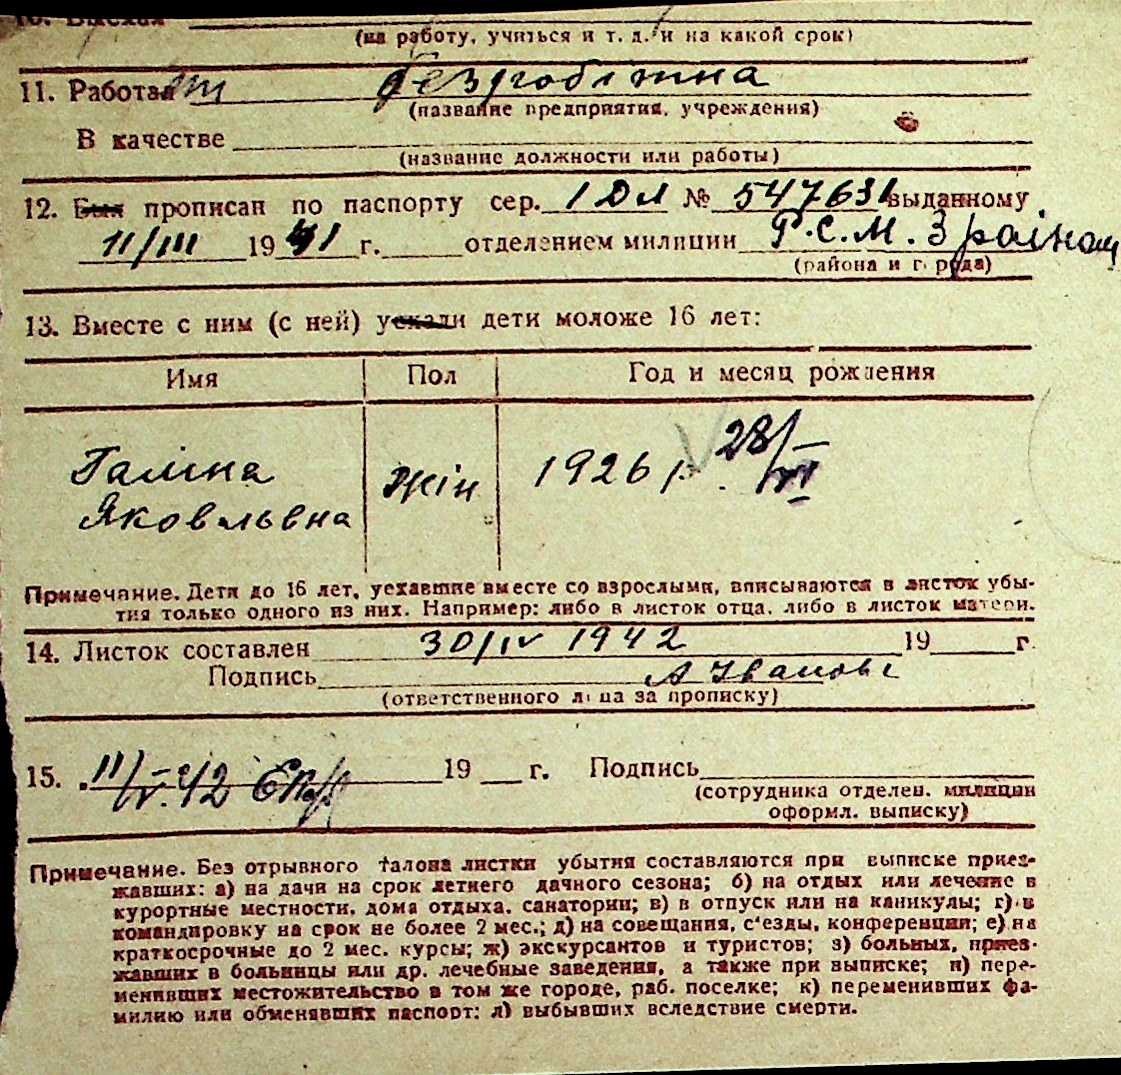 10. Выехал
(на работу, учиться и т. д. и на какой срок)
11. Работает безробітна
(название предприятия, учреждения)
В качестве
(название должности или работы)
12. Был прописан по паспорту сер. 1 ДЛ № 547631 выданному
11/III 1941 г. отделением милиции Р.С.М. 3 районом
(района и города)
13. Вместе с ним (с ней) уехали дети моложе 16 лет:
Имя Пол Год и месяц рождения
Галіна жін 1926 р. 28/VI
Яковлівна
Примечание. Дети до 16 лет, уехавшие вместе со взрослыми, вписываются в листок убы-
тия только одного из них. Например: либо в листок отца, либо в листок матери.
14. Листок составлен 30/IV 1942 19 г.
Подпись А Іванов
(ответственного лица за прописку)
15. 11/V.42 19 г. Подпись
(сотрудника отделен. милиции
оформл. выписку)
Примечание. Без отрывного талона листки убытия составляются при выписке приез-
жавших: а) на дачи на срок летнего дачного сезона; б) на отдых или лечение в
курортные местности, дома отдыха, санатории; в) в отпуск или на каникулы; г) в
командировку на срок не более 2 мес.; д) на совещания, с'езды, конференции; е) на
краткосрочные до 2 мес. курсы; ж) экскурсантов и туристов; з) больных, приез-
жавших в больницы или др. лечебные заведения, а также при выписке; и) пере-
менивших местожительство в том же городе, раб. поселке; к) переменивших фа-
милию или обменявших паспорт; л) выбывших вследствие смерти.